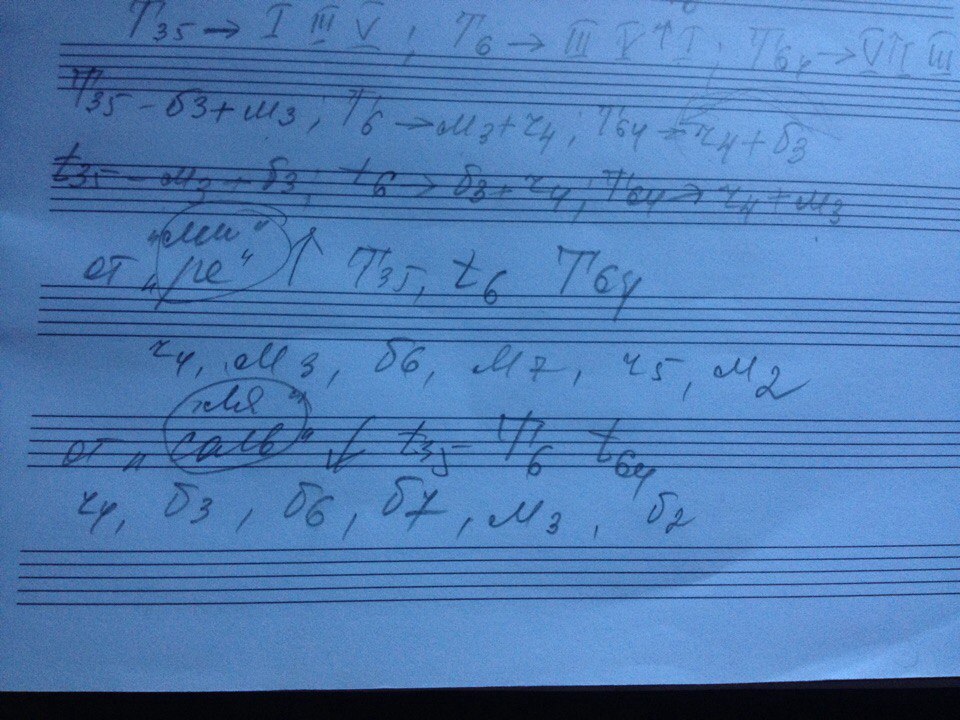 T35 → I III V ; T6 → III V ↑ I ; T64 → V ↑ I III
T35 - б3 + м3 ; T6 → м3 + ч4 ; T64 = ч4 + б3
t35 - м3 + б3 ; t6 → б3 + ч4 ; T64 → ч4 + м3
„ми“
от „ре“ ↑ T35, t6 T64
ч4, м3, б6, м7, ч5, м2
ля
от „соль“ ↓ t35 - T6 t64
ч4, б3, б6, б7, м3, б2